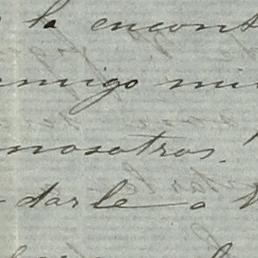 la encont
amigo mi
nosotros.
darle a